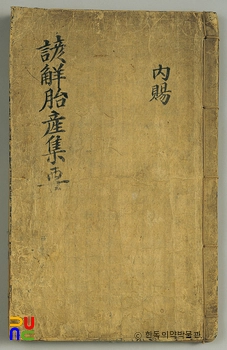 內賜
諺解胎產集要
ⓒ 한독의약박물관